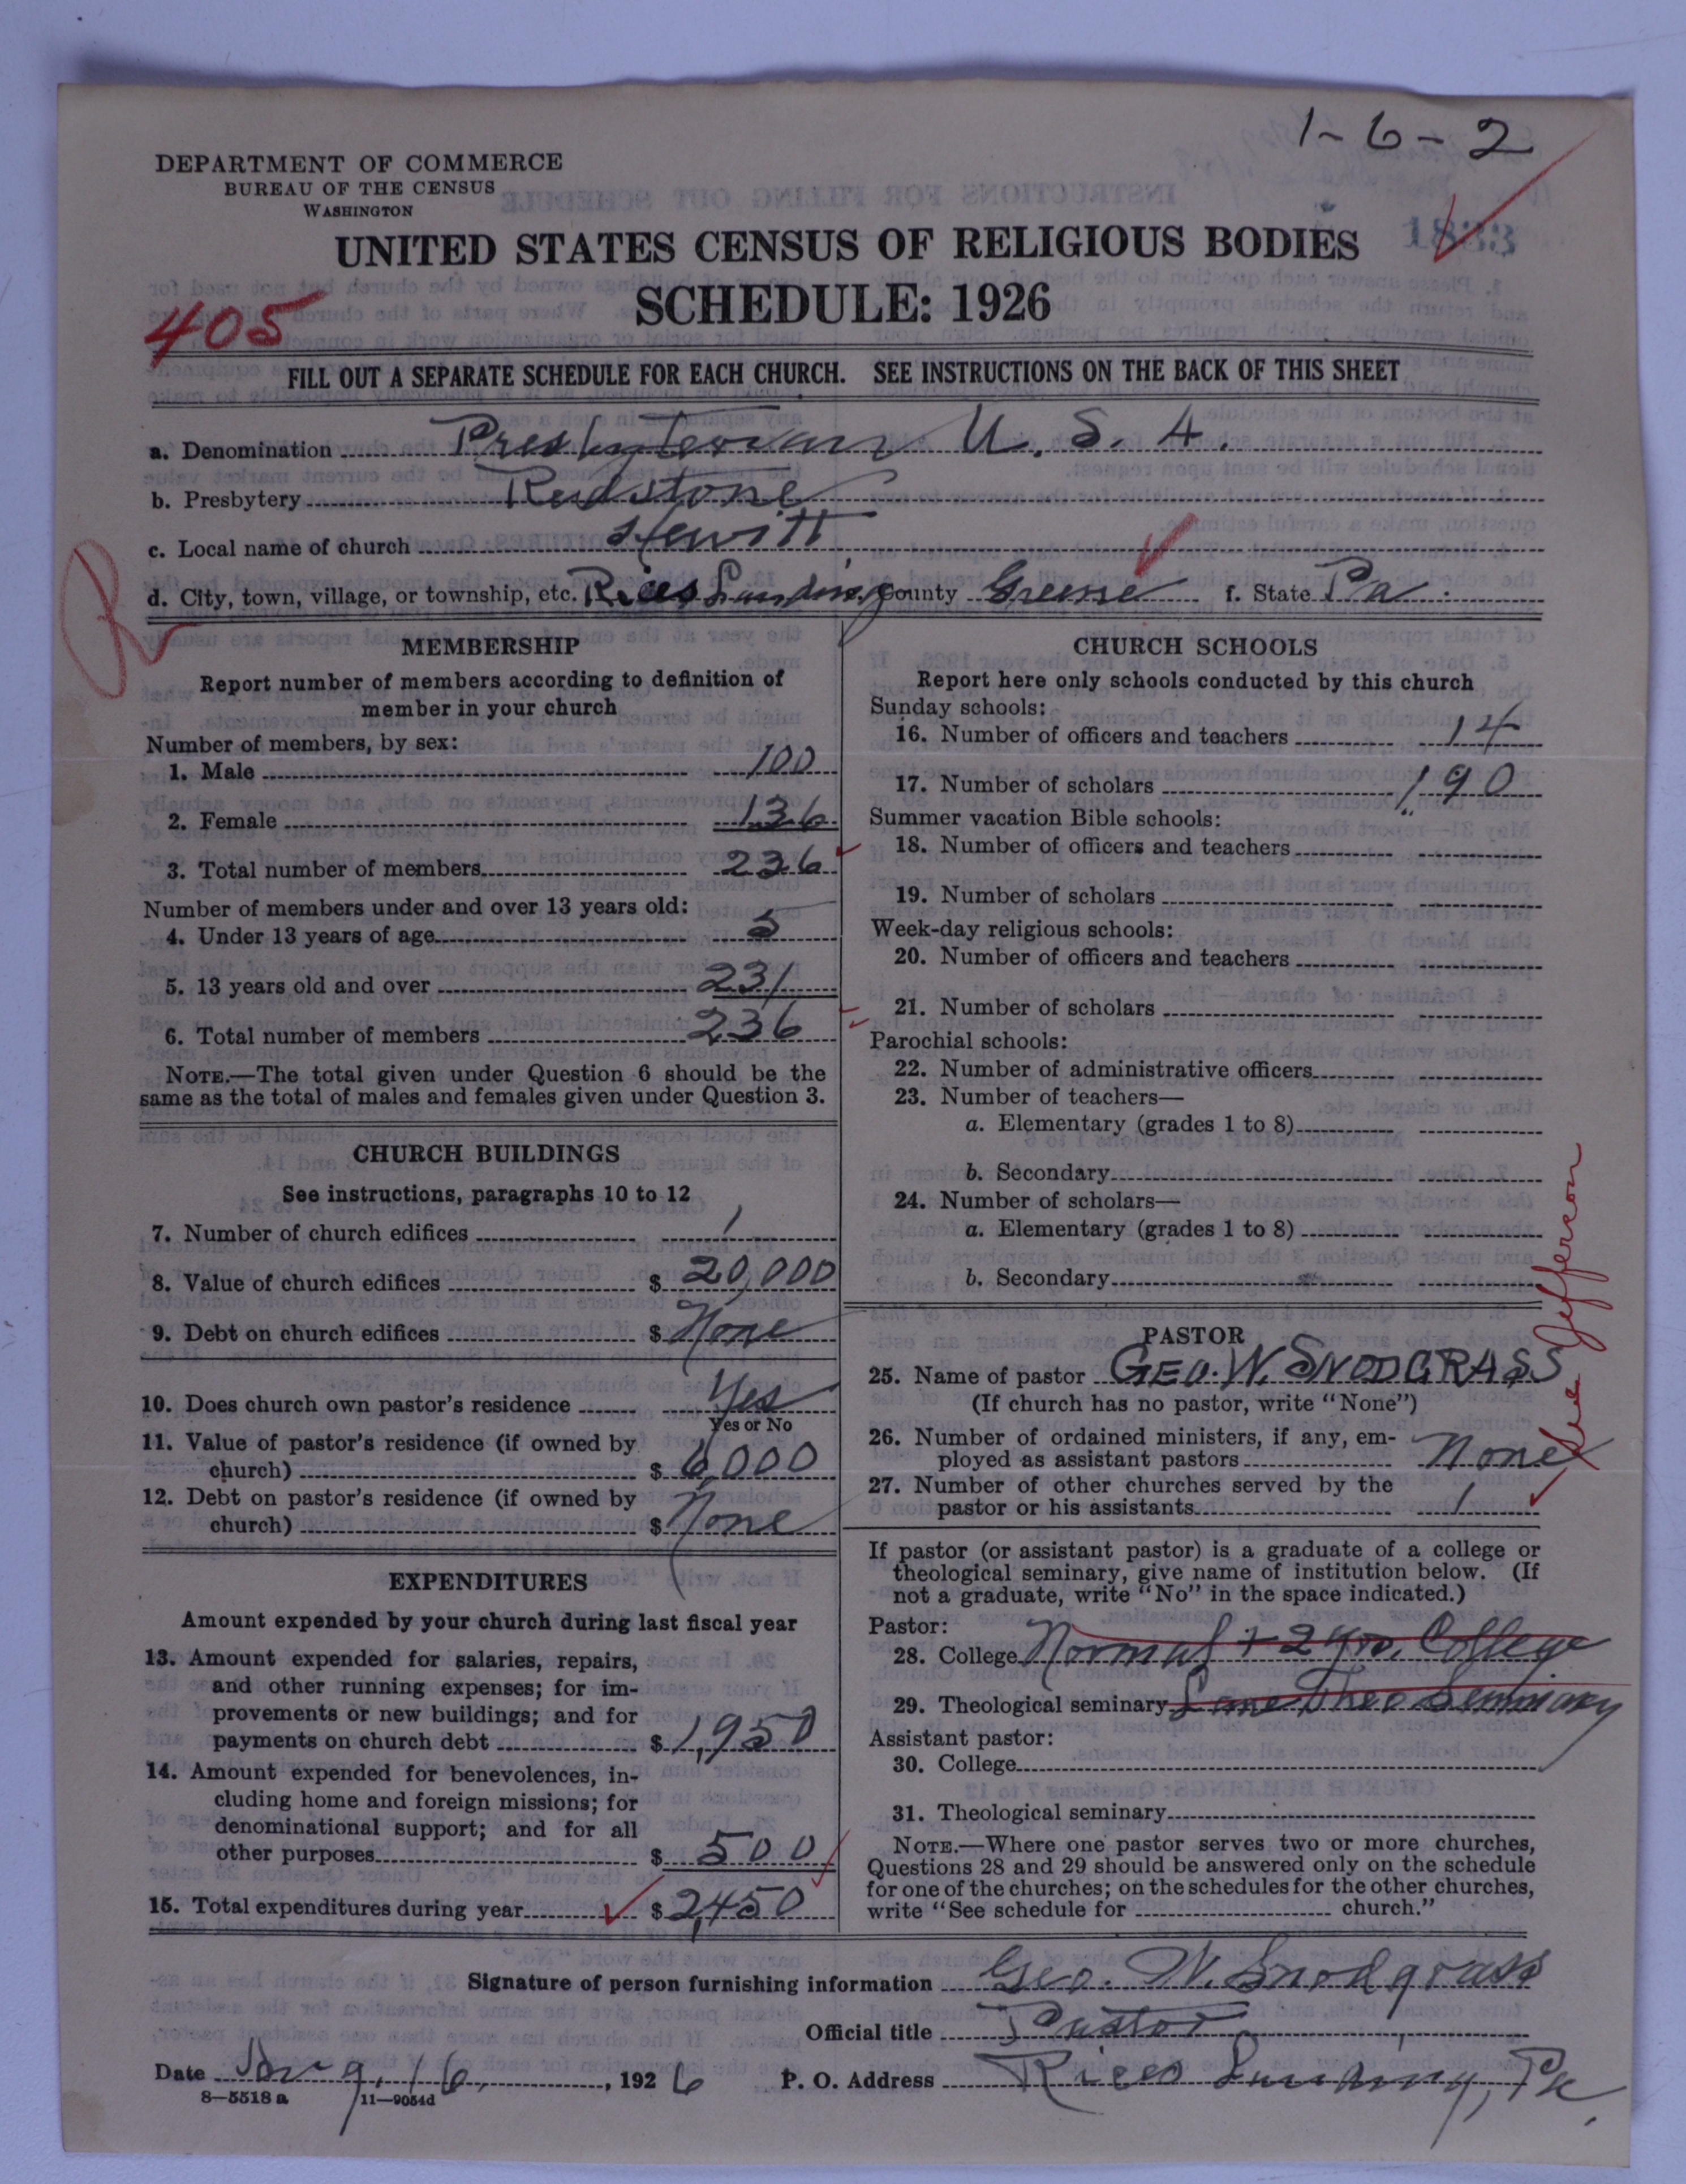 1-6-2
DEPARTMENT OF COMMERCE
BUREAU OF THE CENSUS
WASHINGTON
1833
UNITED STATES CENSUS OF RELIGIOUS BODIES
SCHEDULE: 1926
405
FILL OUT A SEPARATE SCHEDULE FOR EACH CHURCH. SEE INSTRUCTIONS ON THE BACK OF THIS SHEET
a. Denomination Presbyterian U. S. A.
b. Presbytery Redstone
c. Local name of church Hewitt
d. City, town, village, or township, etc. Rices Landing County Greene f. State Pa.
R
MEMBERSHIP
Report number of members according to definition of
member in your church
Number of members, by sex:
1. Male 100
2. Female 136
3. Total number of members 236
Number of members under and over 13 years old:
4. Under 13 years of age 5
5. 13 years old and over 231
6. Total number of members 236
NOTE.—The total given under Question 6 should be the
same as the total of males and females given under Question 3.
CHURCH BUILDINGS
See instructions, paragraphs 10 to 12
7. Number of church edifices 1
8. Value of church edifices $ 20,000
9. Debt on church edifices $ None
10. Does church own pastor's residence Yes
Yes or No
11. Value of pastor's residence (if owned by
church) $ 6,000
12. Debt on pastor's residence (if owned by
church) $ None
EXPENDITURES
Amount expended by your church during last fiscal year
13. Amount expended for salaries, repairs,
and other running expenses; for im-
provements or new buildings; and for
payments on church debt $ 1,950
14. Amount expended for benevolences, in-
cluding home and foreign missions; for
denominational support; and for all
other purposes $ 500
15. Total expenditures during year $ 2,450
CHURCH SCHOOLS
Report here only schools conducted by this church
Sunday schools:
16. Number of officers and teachers 14
17. Number of scholars 190
Summer vacation Bible schools:
18. Number of officers and teachers
19. Number of scholars
Week-day religious schools:
20. Number of officers and teachers
21. Number of scholars
Parochial schools:
22. Number of administrative officers
23. Number of teachers—
a. Elementary (grades 1 to 8)
b. Secondary
24. Number of scholars—
a. Elementary (grades 1 to 8)
b. Secondary
PASTOR
25. Name of pastor GEO. W. SNODGRASS
(If church has no pastor, write "None")
26. Number of ordained ministers, if any, em-
ployed as assistant pastors None
27. Number of other churches served by the
pastor or his assistants 1
See Jefferson
If pastor (or assistant pastor) is a graduate of a college or
theological seminary, give name of institution below. (If
not a graduate, write "No" in the space indicated.)
Pastor:
28. College Normal + 2 yrs. College
29. Theological seminary Lane Theo Seminary
Assistant pastor:
30. College
31. Theological seminary
NOTE.—Where one pastor serves two or more churches,
Questions 28 and 29 should be answered only on the schedule
for one of the churches; on the schedules for the other churches,
write "See schedule for church."
Signature of person furnishing information Geo. W. Snodgrass
Official title Pastor
Date 16, 1926 P. O. Address Rices Landing, Pa.
8—5518 a 11—9054d